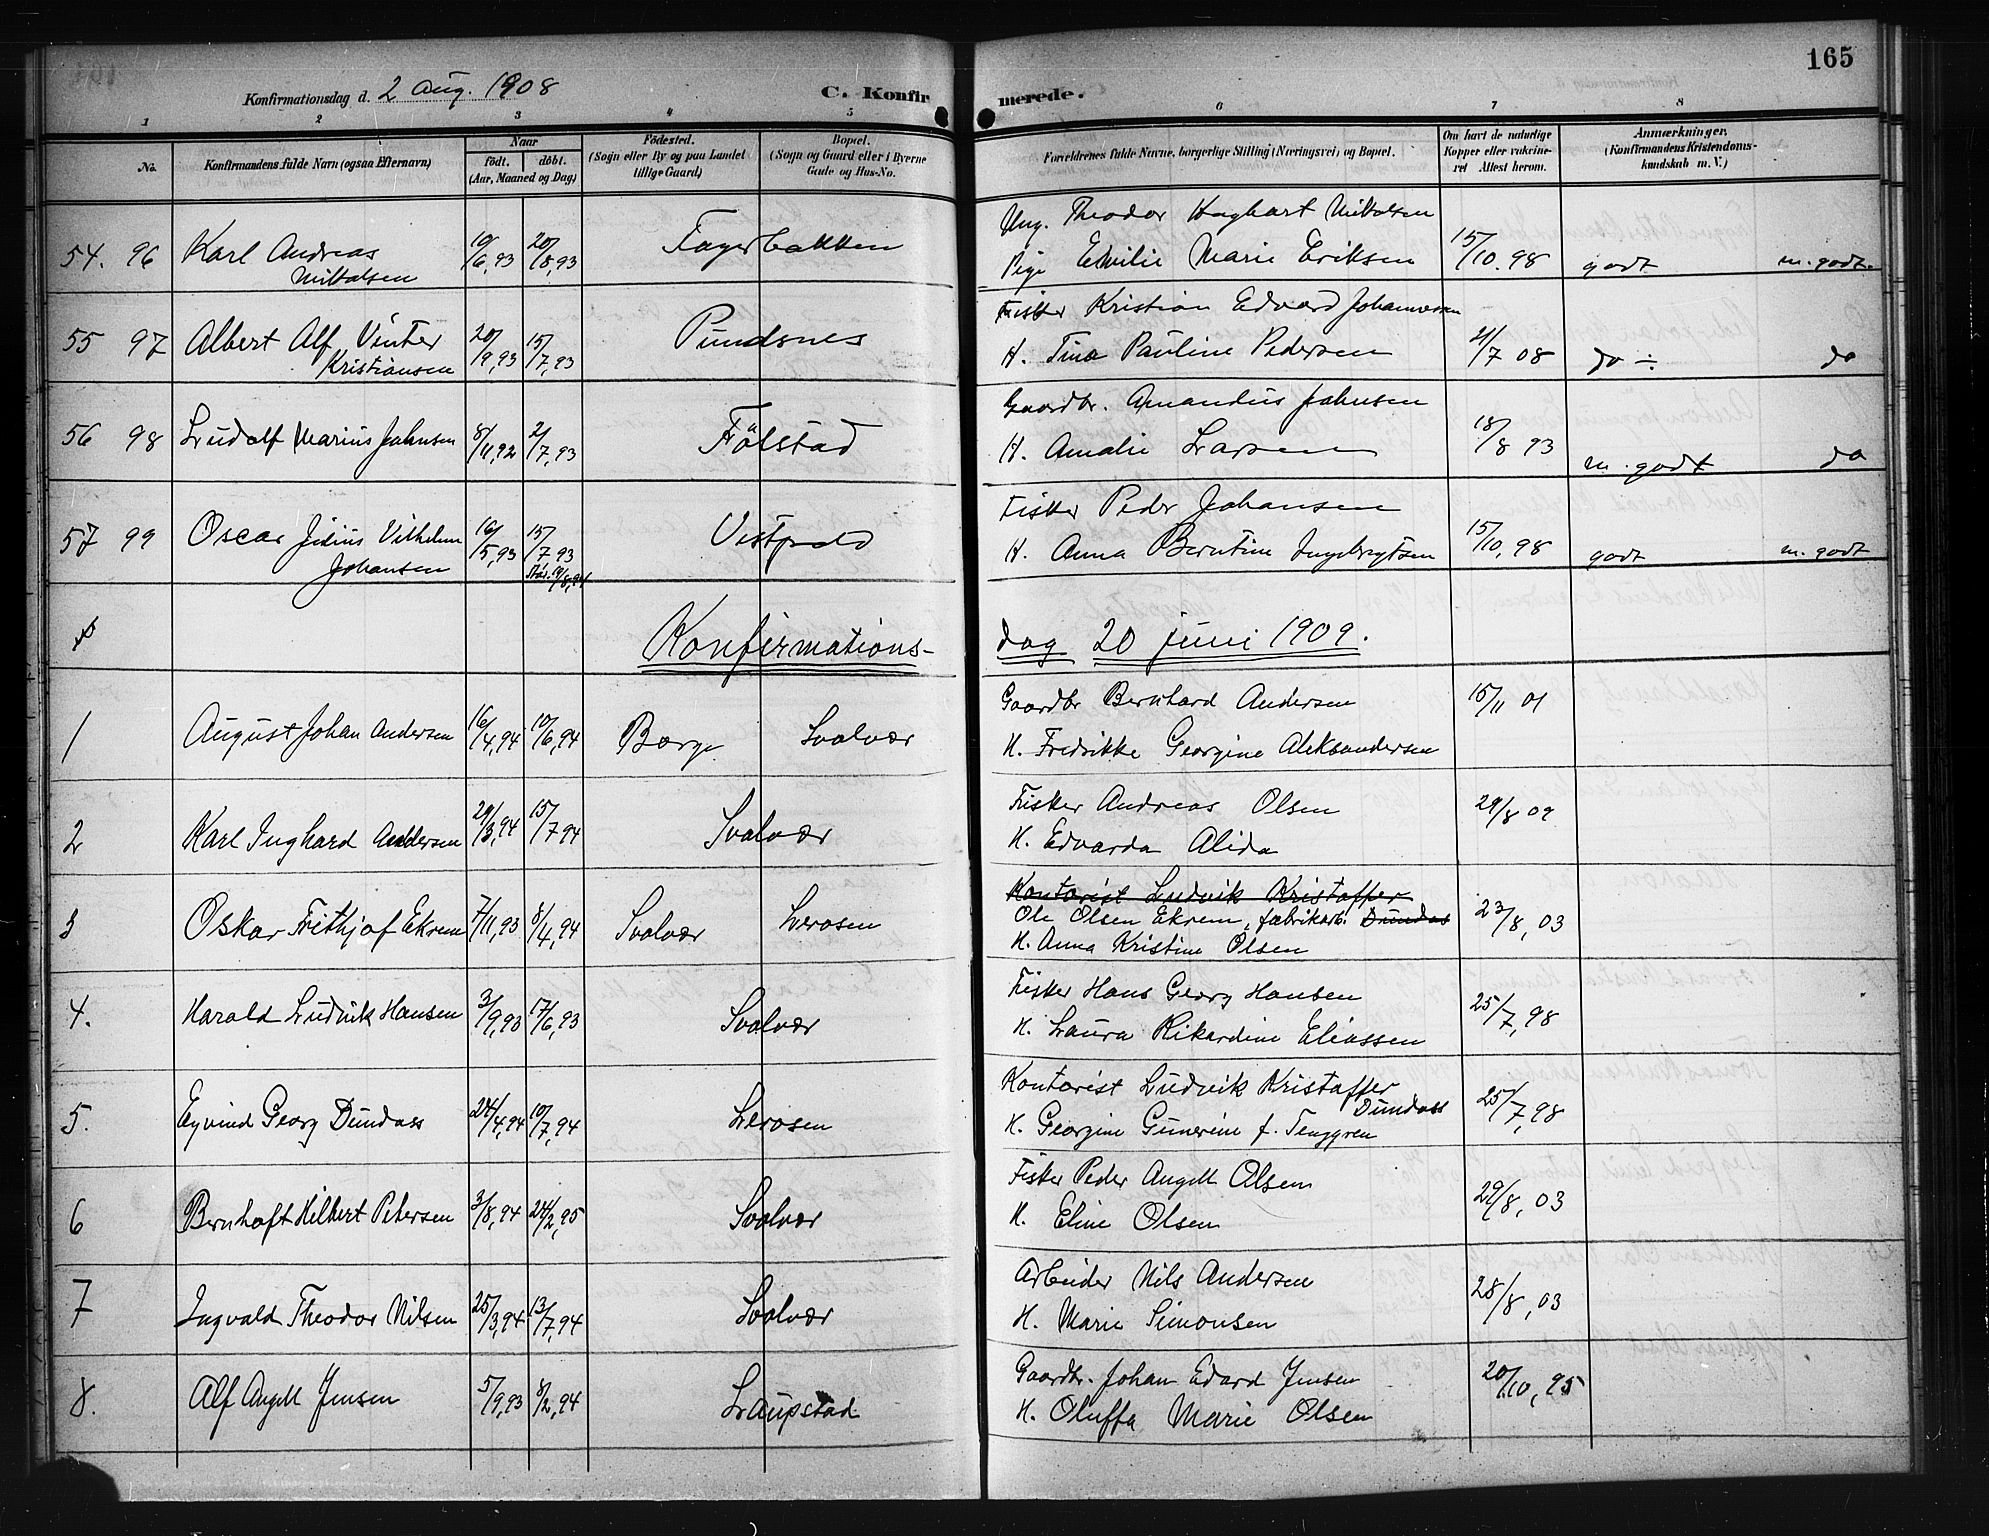 165
Konfirmationsdag d. 2 aug. 1908 C. Konfirmerede.
1 2 3 4 5 6 7 8
No. Konfirmandens fulde Navn (ogsaa Efternavn) Naar født. døbt. (Aar, Maaned og Dag) Fødested. (Sogn eller By og paa Landet tillige Gaard) Bopæl. (Sogn og Gaard eller i Byerne Gade og Hus-No. Forældrenes fulde Navne, borgerlige Stilling (Næringsvei) og Bopæl. Om havt de naturlige Kopper eller vakcineret Attest herom. Anmærkninger. (Konfirmandens Kristendomskundskab m. V.)
Ung. Theodor Mikkalsen
54. 96 Karl Andreas 19/6,93 20/8,93 Fagerbakken Pige Emilie Marie Eriksen 15/10.98 godt m. godt.
Mikkalsen
Fisker Kristian Edvard Johannesen
55 97 Albert Alf Vinter 20/9,93 15/7,93 Pundsnes H. Tina Pauline Pedersen 21/7 08 do ÷ do
Kristiansen
Gaardbr. Amandus Jahnsen
56 98 Ludolf Marius Jahnsen 8/11,92 2/7,93 Følstad H. Amalie Larsen 18/8 93 m. godt do
Fisker Peder Johansen
57 99 Oscar Julius Vilhelm 16/5,93 15/7 93 Vestpold H. Anna Berntine Ingebrigtsen 15/10,98 godt m. godt
Johansen
Konfirmations-dag 20 juni 1909.
Gaardbr Bernhard Andersen 15/11 01
1 August Johan Andersen 16/4,94 10/6,94 Borge Svolvær
H. Fredrikke Georgine Aleksandersen
Fisker Andreas Olsen 29/8 09
2 Karl Inghard Andersen 29/3,94 15/7 94 Svolvær
H. Edvarda Alida
Kontorist Ludvik Kristoffer
3 Oskar Frithjof Ekrem 7/11,93 8/4,94 Svolvær Lerosen Ole Olsen Ekrem, fabrikarb. Dundas 23/8,03
H. Anna Kristine Olsen
Fisker Hans Georg Hansen
4. Harald Ludvik Hansen 3/9,93 17/6,93 Svolvær 25/7,98
H. Laura Rikardine Eliassen
Kontorist Ludvik Kristoffer
Dundass
5. Eyvind Georg Dundass 24/4,94 10/7,94 Lerosen 25/7,98
H. Georgine Gunerine f. Tenggren
Fisker Peder Angell Olsen
6 Bernhoft Hilbert Petersen 3/8,94 24/2,95 Svolvær 29/8,03
H. Eline Olsen
Arbeider Nils Andersen
7 Ingvald Theodor Nilsen 25/3,94 13/7,94 Svolvær 28/8,03
H. Marie Simonsen
Gaardbr. Johan Edard Jensen
8. Alf Angell Jensen 5/9,93 8/2,94 Laupstad 20/10,95
H. Oluffa Marie Olsen